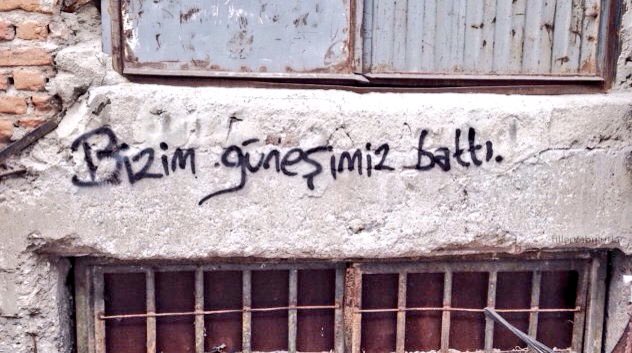 Bizim güneşimiz battı.